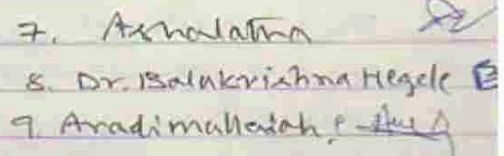 7. Ashalatha
8. Dr. Balakrishna Hegde
9. Aradimallaiah.